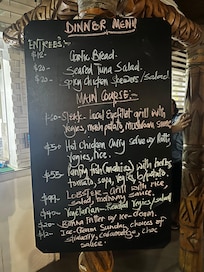 DINNER MENU
ENTREES:-
Garlic Bread.
$20- Seared Tuna Salad.
$20- Spicy Chicken Skewers/Salad
MAIN COURSE:-
Steak- Local Eye fillet grill with
Vegies, mash potato, mushroom sauce
Hot Chicken Curry salsa w/ Roti,
Vegies, rice.
with herbs,
tomato, soya,
LOBSTER- Grill with rice,
salad, sauce.
Vegetarian- Roasted Vegies/salad
$20- Banana Fritter w/ ice-cream.
$12- Ice-Cream Sunday, choices of
chocolate, caramel, choc
sauce.